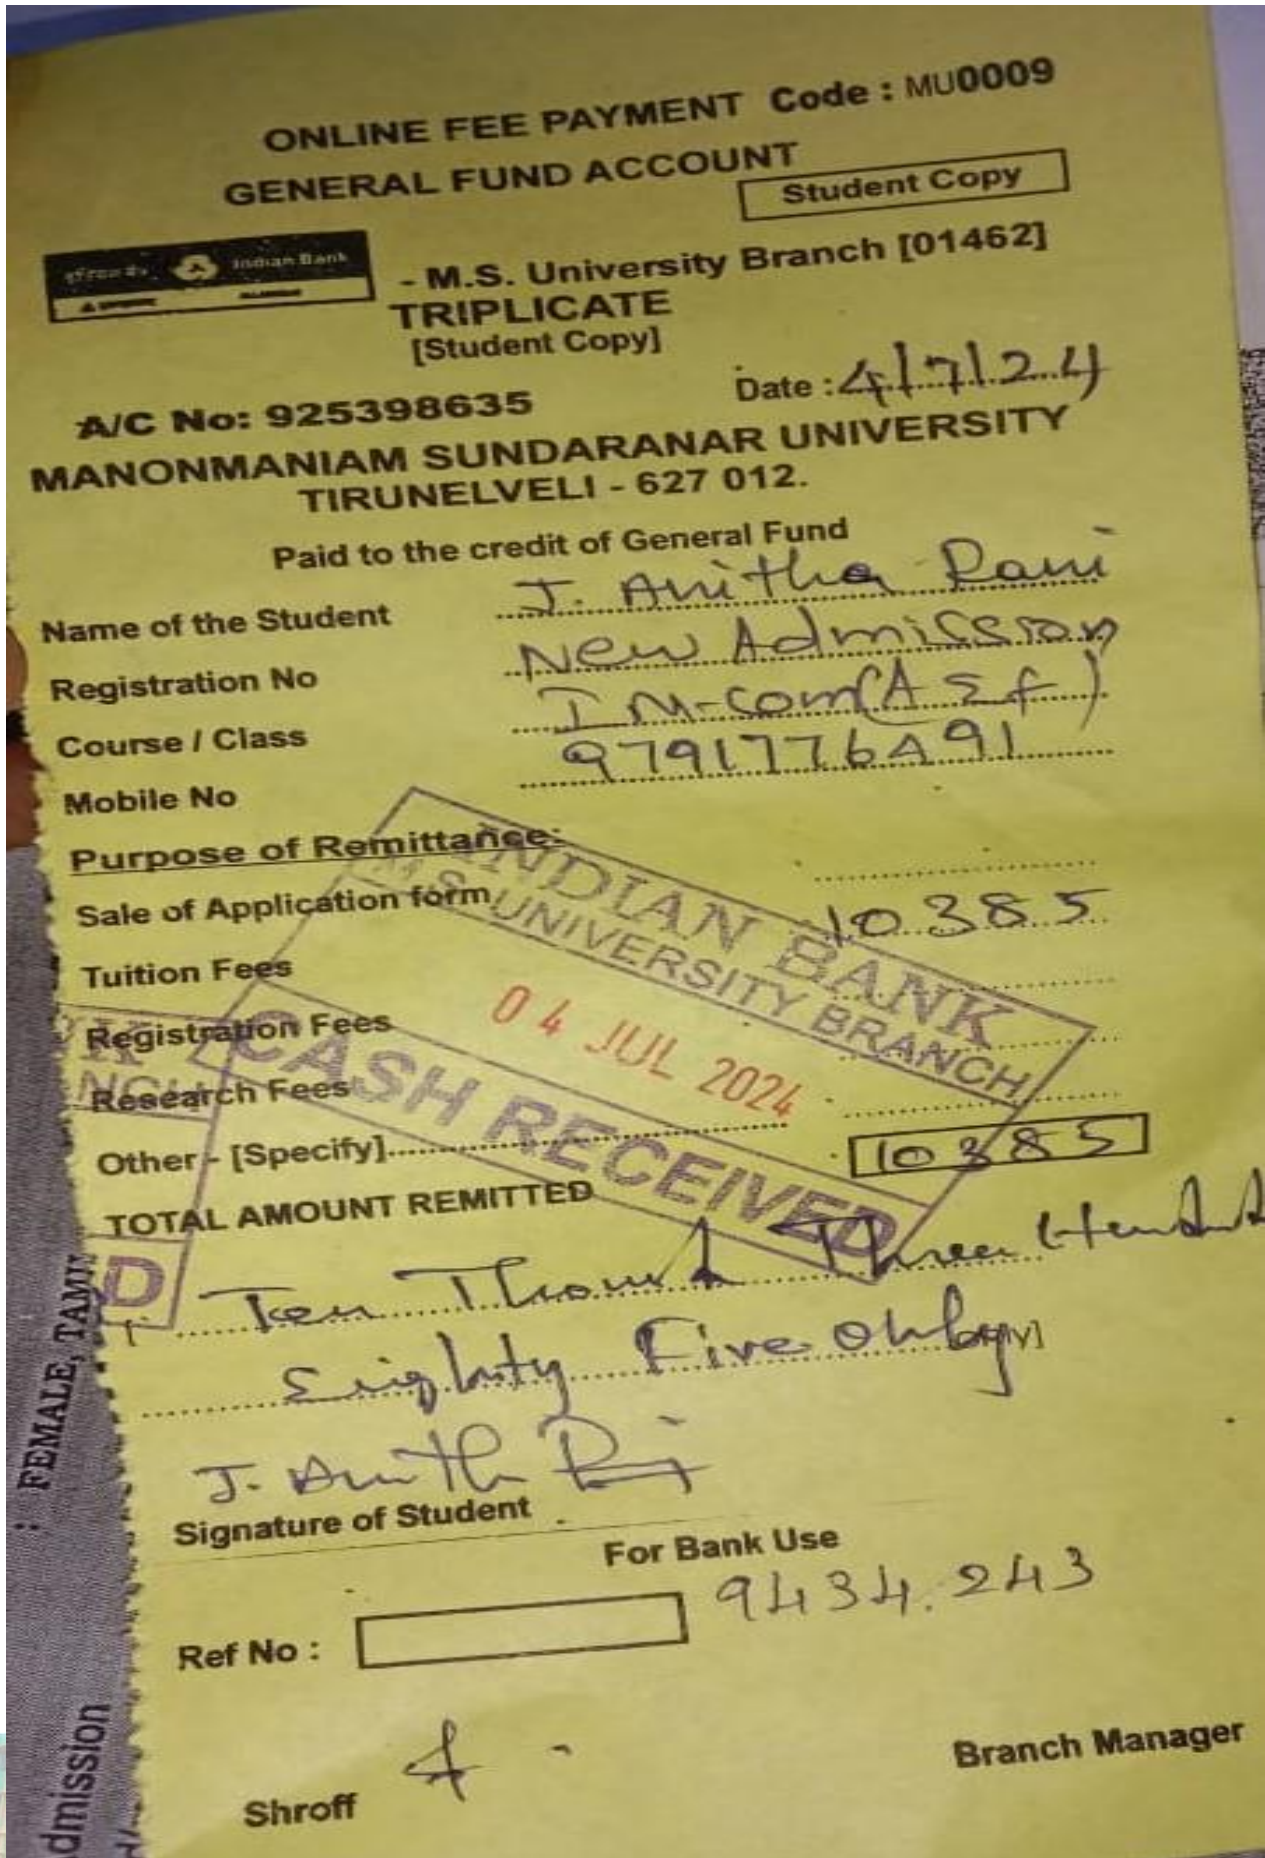 ONLINE FEE PAYMENT Code : MU0009
GENERAL FUND ACCOUNT
Student Copy
Indian Bank
- M.S. University Branch [01462]
TRIPLICATE
[Student Copy]
Date : 4/7/24
A/C No: 925398635
MANONMANIAM SUNDARANAR UNIVERSITY
TIRUNELVELI - 627 012.
Paid to the credit of General Fund
Name of the Student J. Anitha Rani
Registration No New Admission
Course / Class I M-com(A & f)
Mobile No 9791776491
Purpose of Remittance:
Sale of Application form
Tuition Fees 10385
Registration Fees
Research Fees
Other - [Specify]
TOTAL AMOUNT REMITTED 10385
INDIAN BANK
M.S. UNIVERSITY BRANCH
04 JUL 2024
CASH RECEIVED
Ten Three
Eighty Five Only
J. Anitha
Signature of Student
For Bank Use
Ref No : 9434.243
Shroff
Branch Manager
: FEMALE, TAMI
dmission